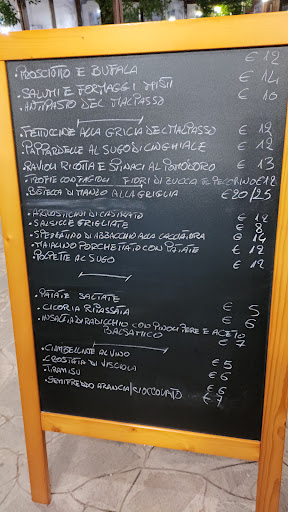 • PROSCIUTTO E BUFALA € 12
• SALUMI E FORMAGGI MISTI € 14
• ANTIPASTO DEL MALPASSO € 10
• FETTUCCINE ALLA GRICIA DEL MALPASSO € 12
• PAPPARDELLE AL SUGO DI CINGHIALE € 12
• RAVIOLI RICOTTA E SPINACI AL POMODORO € 13
• TROFIE CON FAGIOLI FIORI DI ZUCCA E PECORINO €12
BISTECCA DI MANZO ALLA GRIGLIA €20/25
• ARROSTICINI DI CASTRATO € 12
• SALSICCE GRIGLIATE € 8
• SPEZZATINO DI ABBACCHIO ALLA CACCIATORA € 14
• MAIALINO PORCHETTATO CON PATATE € 12
POLPETTE AL SUGO € 12
• PATATE SALTATE € 5
• CICORIA RIPASSATA € 6
• INSALATA DI RADICCHIO CON PINOLI PERE E ACETO
BALSAMICO € 7
• CIAMBELLINE AL VINO € 5
• CROSTATA DI VISCIOLA € 6
• TIRAMISU € 6
• SEMIFREDDO ARANCIA/CIOCCOLATO € 7